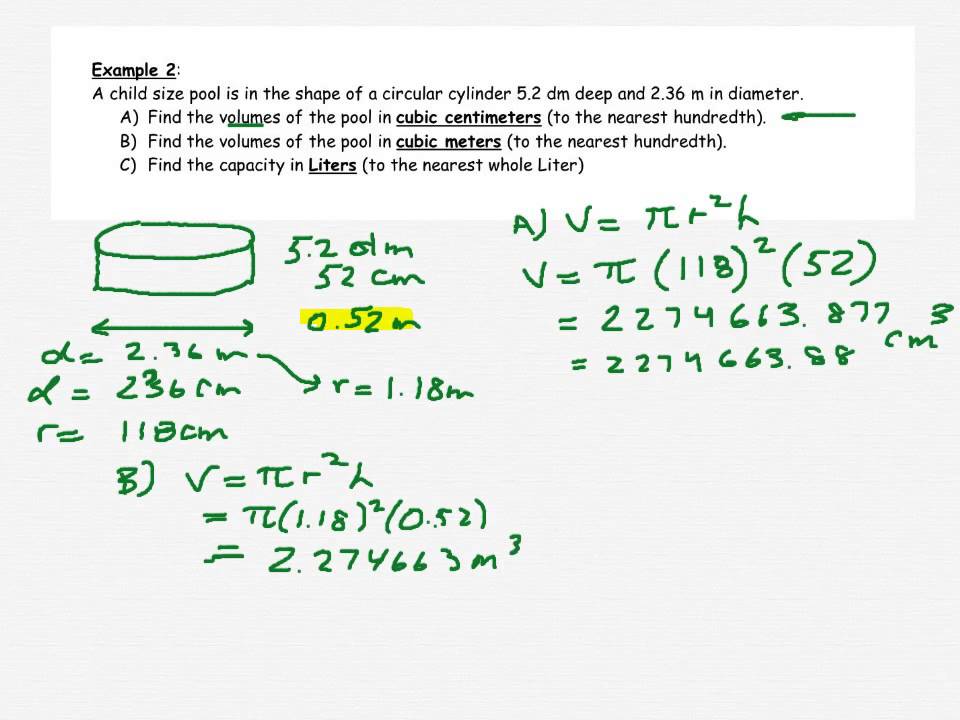 Example 2:
A child size pool is in the shape of a circular cylinder 5.2 dm deep and 2.36 m in diameter.
A) Find the volumes of the pool in cubic centimeters (to the nearest hundredth).
B) Find the volumes of the pool in cubic meters (to the nearest hundredth).
C) Find the capacity in Liters (to the nearest whole Liter)
5.2 dm
52 cm
0.52 m
d = 2.36 m
r = 1.18m
d = 236 cm
r = 118cm
A) V = πr²h
V = π (118)² (52)
= 2274663.877
= 2274663.88 cm³
B) V = πr²h
= π(1.18)²(0.52)
= 2.274663 m³